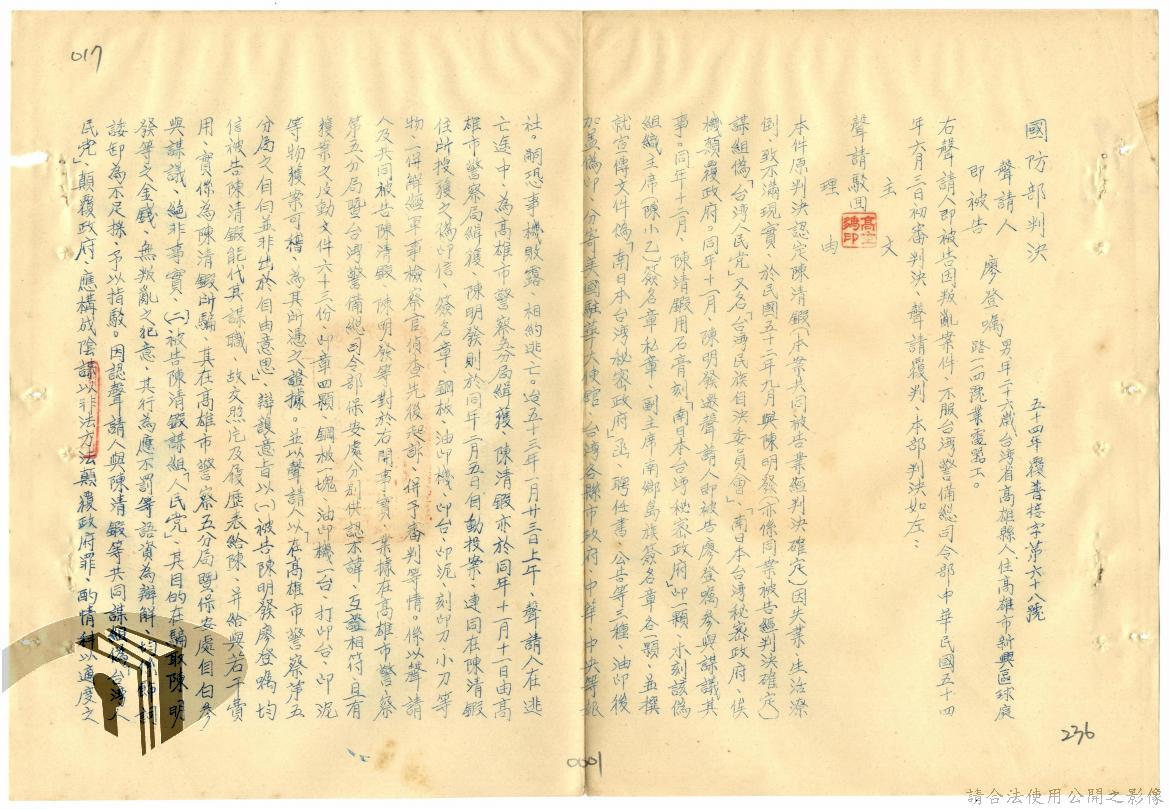 017
國防部判決
五十四年覆普接字第六十八號
聲請人
即被告 廖登囑 男年二十六歲台湾省高雄縣人住高雄市新興區球庭
路一四號業電器工。
右聲請人即被告因叛亂案件、不服台湾警備總司令部中華民國五十四
年六月三日初審判決、聲請覆判、本部判決如左：
主文
聲請駁回
理由
本件原判決認定陳清鍛(本案共同被告業經判決確定)因失業、生活潦
倒、致不滿現實、於民國五十二年九月與陳明發(亦係同案被告經判決確定)
謀組偽「台湾人民党」又名「台湾民族自決委員會」、「南日本台湾秘密政府、俟
機顛覆政府。同年十一月、陳明發邀聲請人即被告廖登囑參與謀議其
事。同年十二月、陳清鍛用石膏刻「南日本台湾秘密政府」印一顆、木刻該偽
組織主席(陳小乙)簽名章私章、副主席南鄉島族簽名章各一顆、並撰
就宣傳文件偽「南日本台湾秘密政府」函、聘任書、公告等三種、油印後
加盖偽印、分寄美國駐華大使館、台湾各縣市政府、中華、中央等報
社。嗣恐事機敗露、相約逃亡。迨五十三年一月廿三日上午、聲請人在逃
亡途中、為高雄市警察五分局緝獲、陳清鍛亦於同年十一月十一日由高
雄市警察局緝獲、陳明發則於同年二月五日自動投案、連同在陳清鍛
住所搜獲之偽印信、簽名章、鋼板、油印機、印台、印泥、刻印刀、小刀等
物、一併解經軍事檢察官偵查先後起訴、併予審判等情。係以聲請
人及共同被告陳清鍛、陳明發等對於右開事實、業據在高雄市警察
第五分局暨台湾警備總司令部保安處分別供認不諱、互證相符且有
獲案之反動文件六十三份、印章四顆、鋼板一塊、油印機一台、打印台、印泥
等物獲案可稽、為其所憑之證據。並以聲請人以「在高雄市警察第五
分局之自白並非出於自由意思」、辯護意旨以(一)被告陳明發廖登囑均
信被告陳清鍛能代其謀職、故交照片及履歷表給陳、并給與若干費
用、實係為陳清鍛所騙、其在高雄市警察五分局暨保安處自白參
與謀議、絕非事實、(二)被告陳清鍛謀組「人民党」、其目的在騙取陳明
發等之金錢、無叛亂之犯意、其行為應不罰等語資為辯解、均係飾詞
諉卸為不足採、予以指駁。因認聲請人與陳清鍛等共同謀組偽「台湾人
民党」顛覆政府、應構成陰謀以非法方法顛覆政府罪、酌情科以適度之
236
0001
請合法使用公開之影像